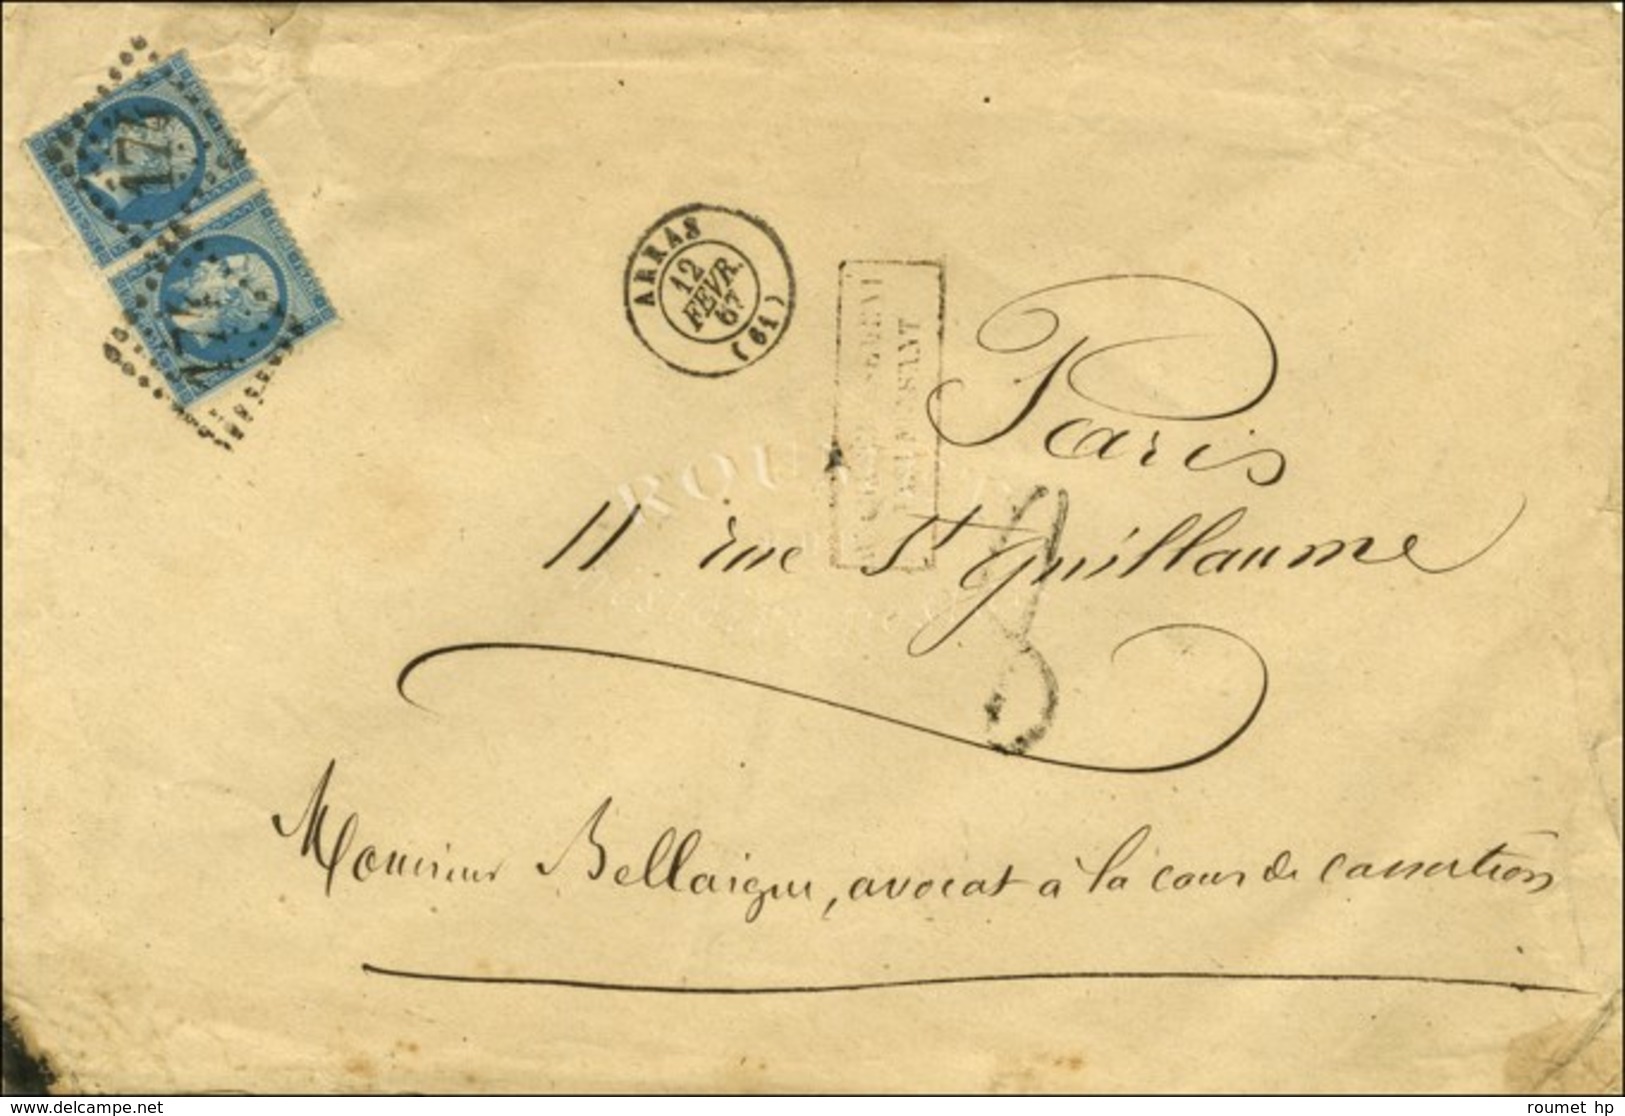 174
174
ARRAS
12
FEVR.
67
(61)
8
Paris
11 rue St Guillaume
Monsieur Bellaigue, avocat à la cour de cassation
www.delcampe.net
roumet hp